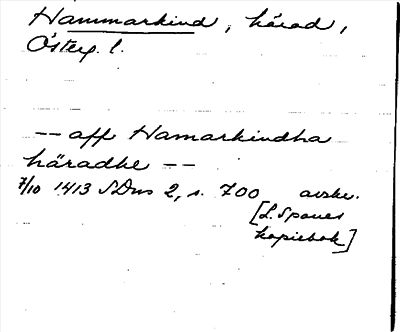 Hammarkind, härad,
Österg. l.
-- aff Hamarkindha
häradhe --
7/10 1413 SDns 2, s. 700 avskr.
[L. Sparres
kopiebok]